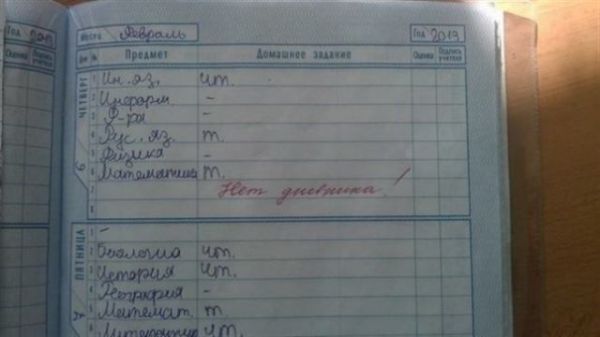 Год 2019
Оценка Подпись учителя
Месяц Февраль Год 2019
Дни № Предмет Домашнее задание Оценка Подпись учителя
ЧЕТВЕРГ
1 Ин. яз. чт.
2 Информ. -
3 Ф-ра -
4 Рус. яз. т.
5 Физика -
6 Математика т.
7 Нет дневника!
8
ПЯТНИЦА
1 -
2 Биология чт.
3 История чт.
4 География -
5 Математ. т.
6 Литература чт.